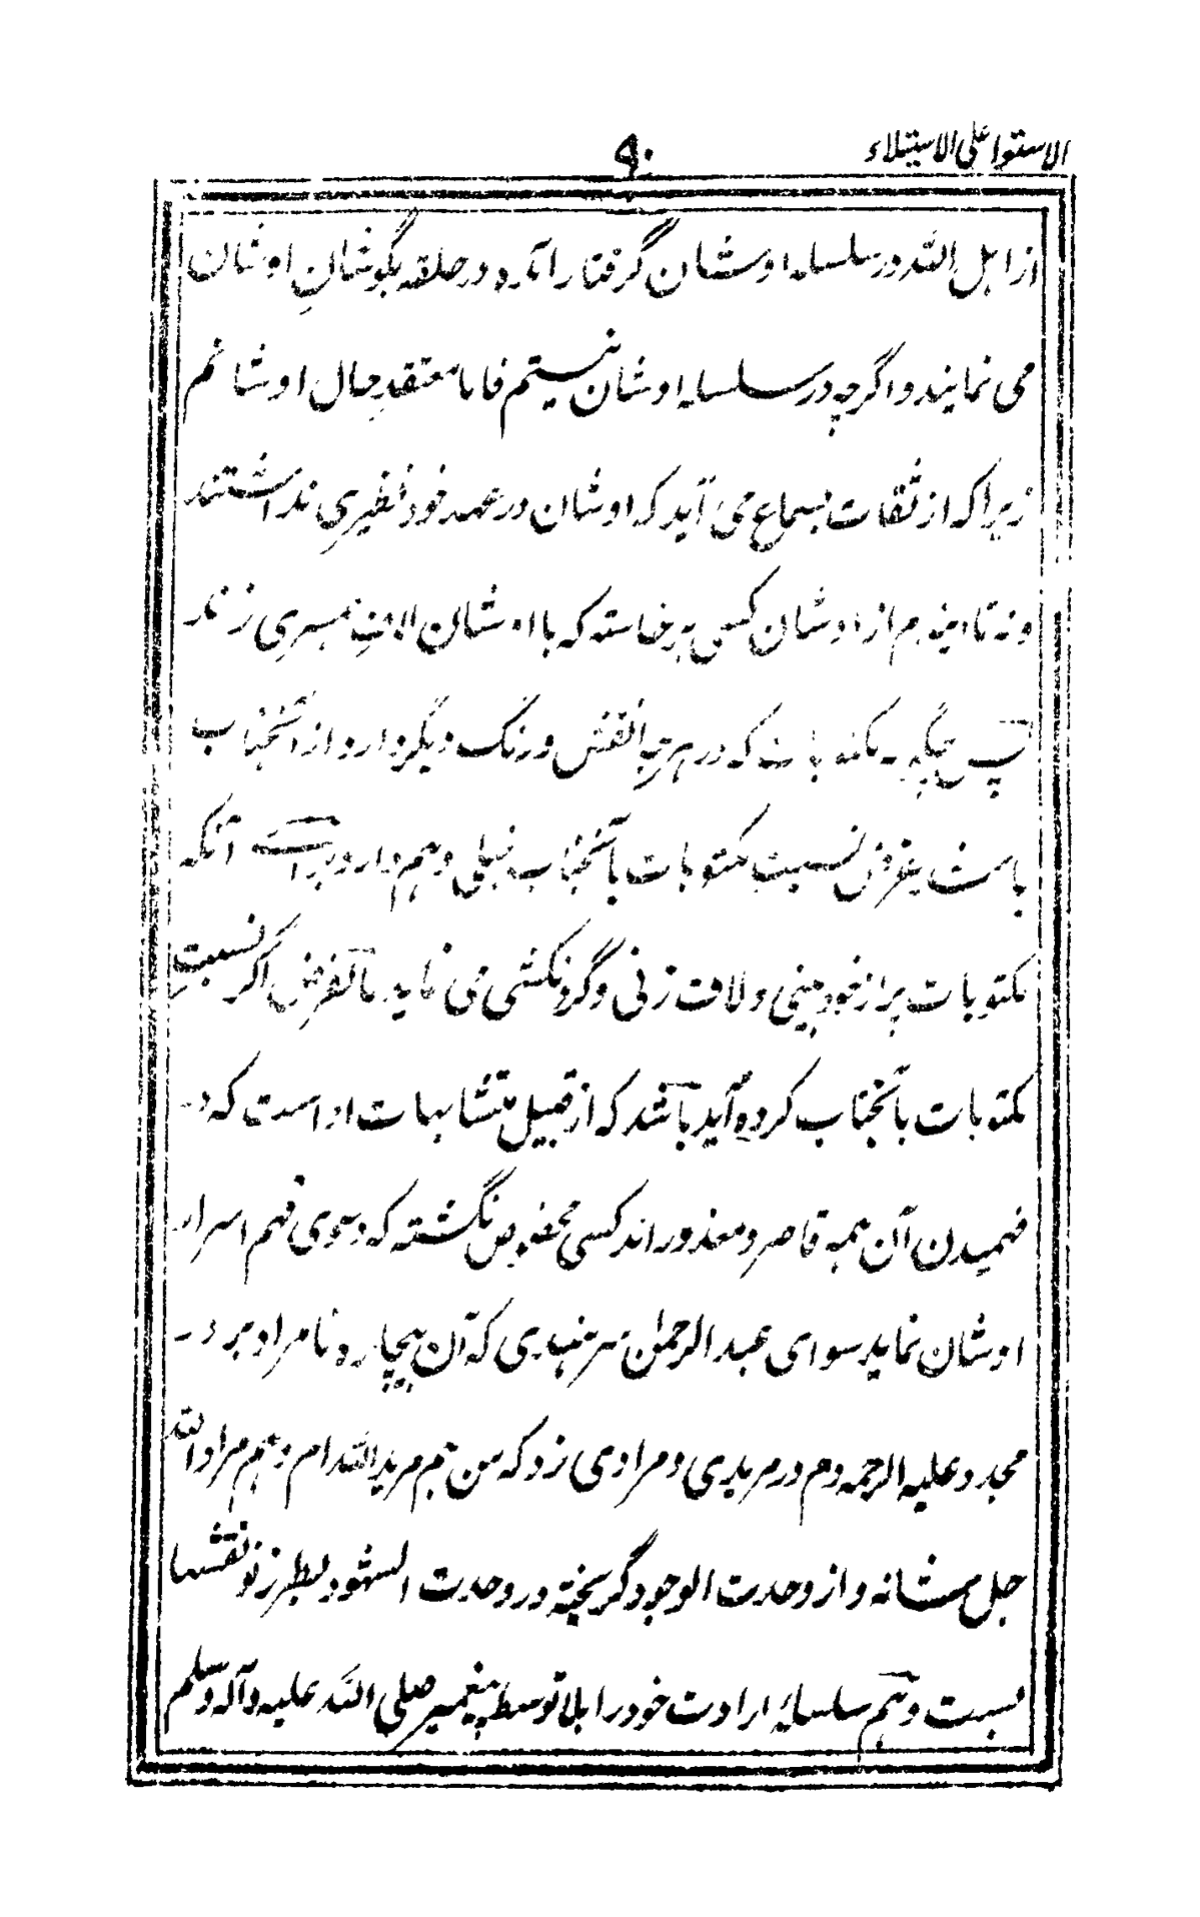 الاستوا علی الاستیلاء
۹۰
از اہل اللہ در سلسلہ اوشان گرفتار آمدہ در حلقہ بگوشان اوشان
می نمایند و اگرچہ در سلسلہ اوشان نیستم فاما معتقد حال اوشانم
زیراکہ از ثقات بسماع می آید کہ اوشان در عہد خود نظیری نداشتند
و نہ تا ایندم از اوشان کسی برخاستہ کہ با اوشان لاف ہمسری زند
پس کہ در ہرچہ نقش و رنگ دیگر دارد از آنجناب
باشد غرض نسبت مکتوبات بآنجناب خیلی وہم دارد برای آنکہ
مکتوبات پر از خودبینی و لاف زنی و گردنکشی می نماید بالفرض اگر نسبت
مکتوبات بآنجناب کردہ آید باشد کہ از قبیل متشابہات او است کہ در
فہمیدن آن ہمہ قاصر و معذور اند کسی مخصوص نگشتہ کہ دعوی فہم اسرار
اوشان نماید سوای عبد الرحمٰن سرہندی کہ آن بیچارہ نامراد بر در
مجدد علیہ الرحمہ دم در مریدی و مرادی زد کہ من ہم مرید اللہ ام و ہم مراد اللہ
جل شانہ و از وحدت الوجود گریختہ در وحدت الشہود بطرز نو نقشہا
بست و ہم سلسلۂ ارادت خود را بلا توسط پیغمبر صلی اللہ علیہ و آلہ وسلم